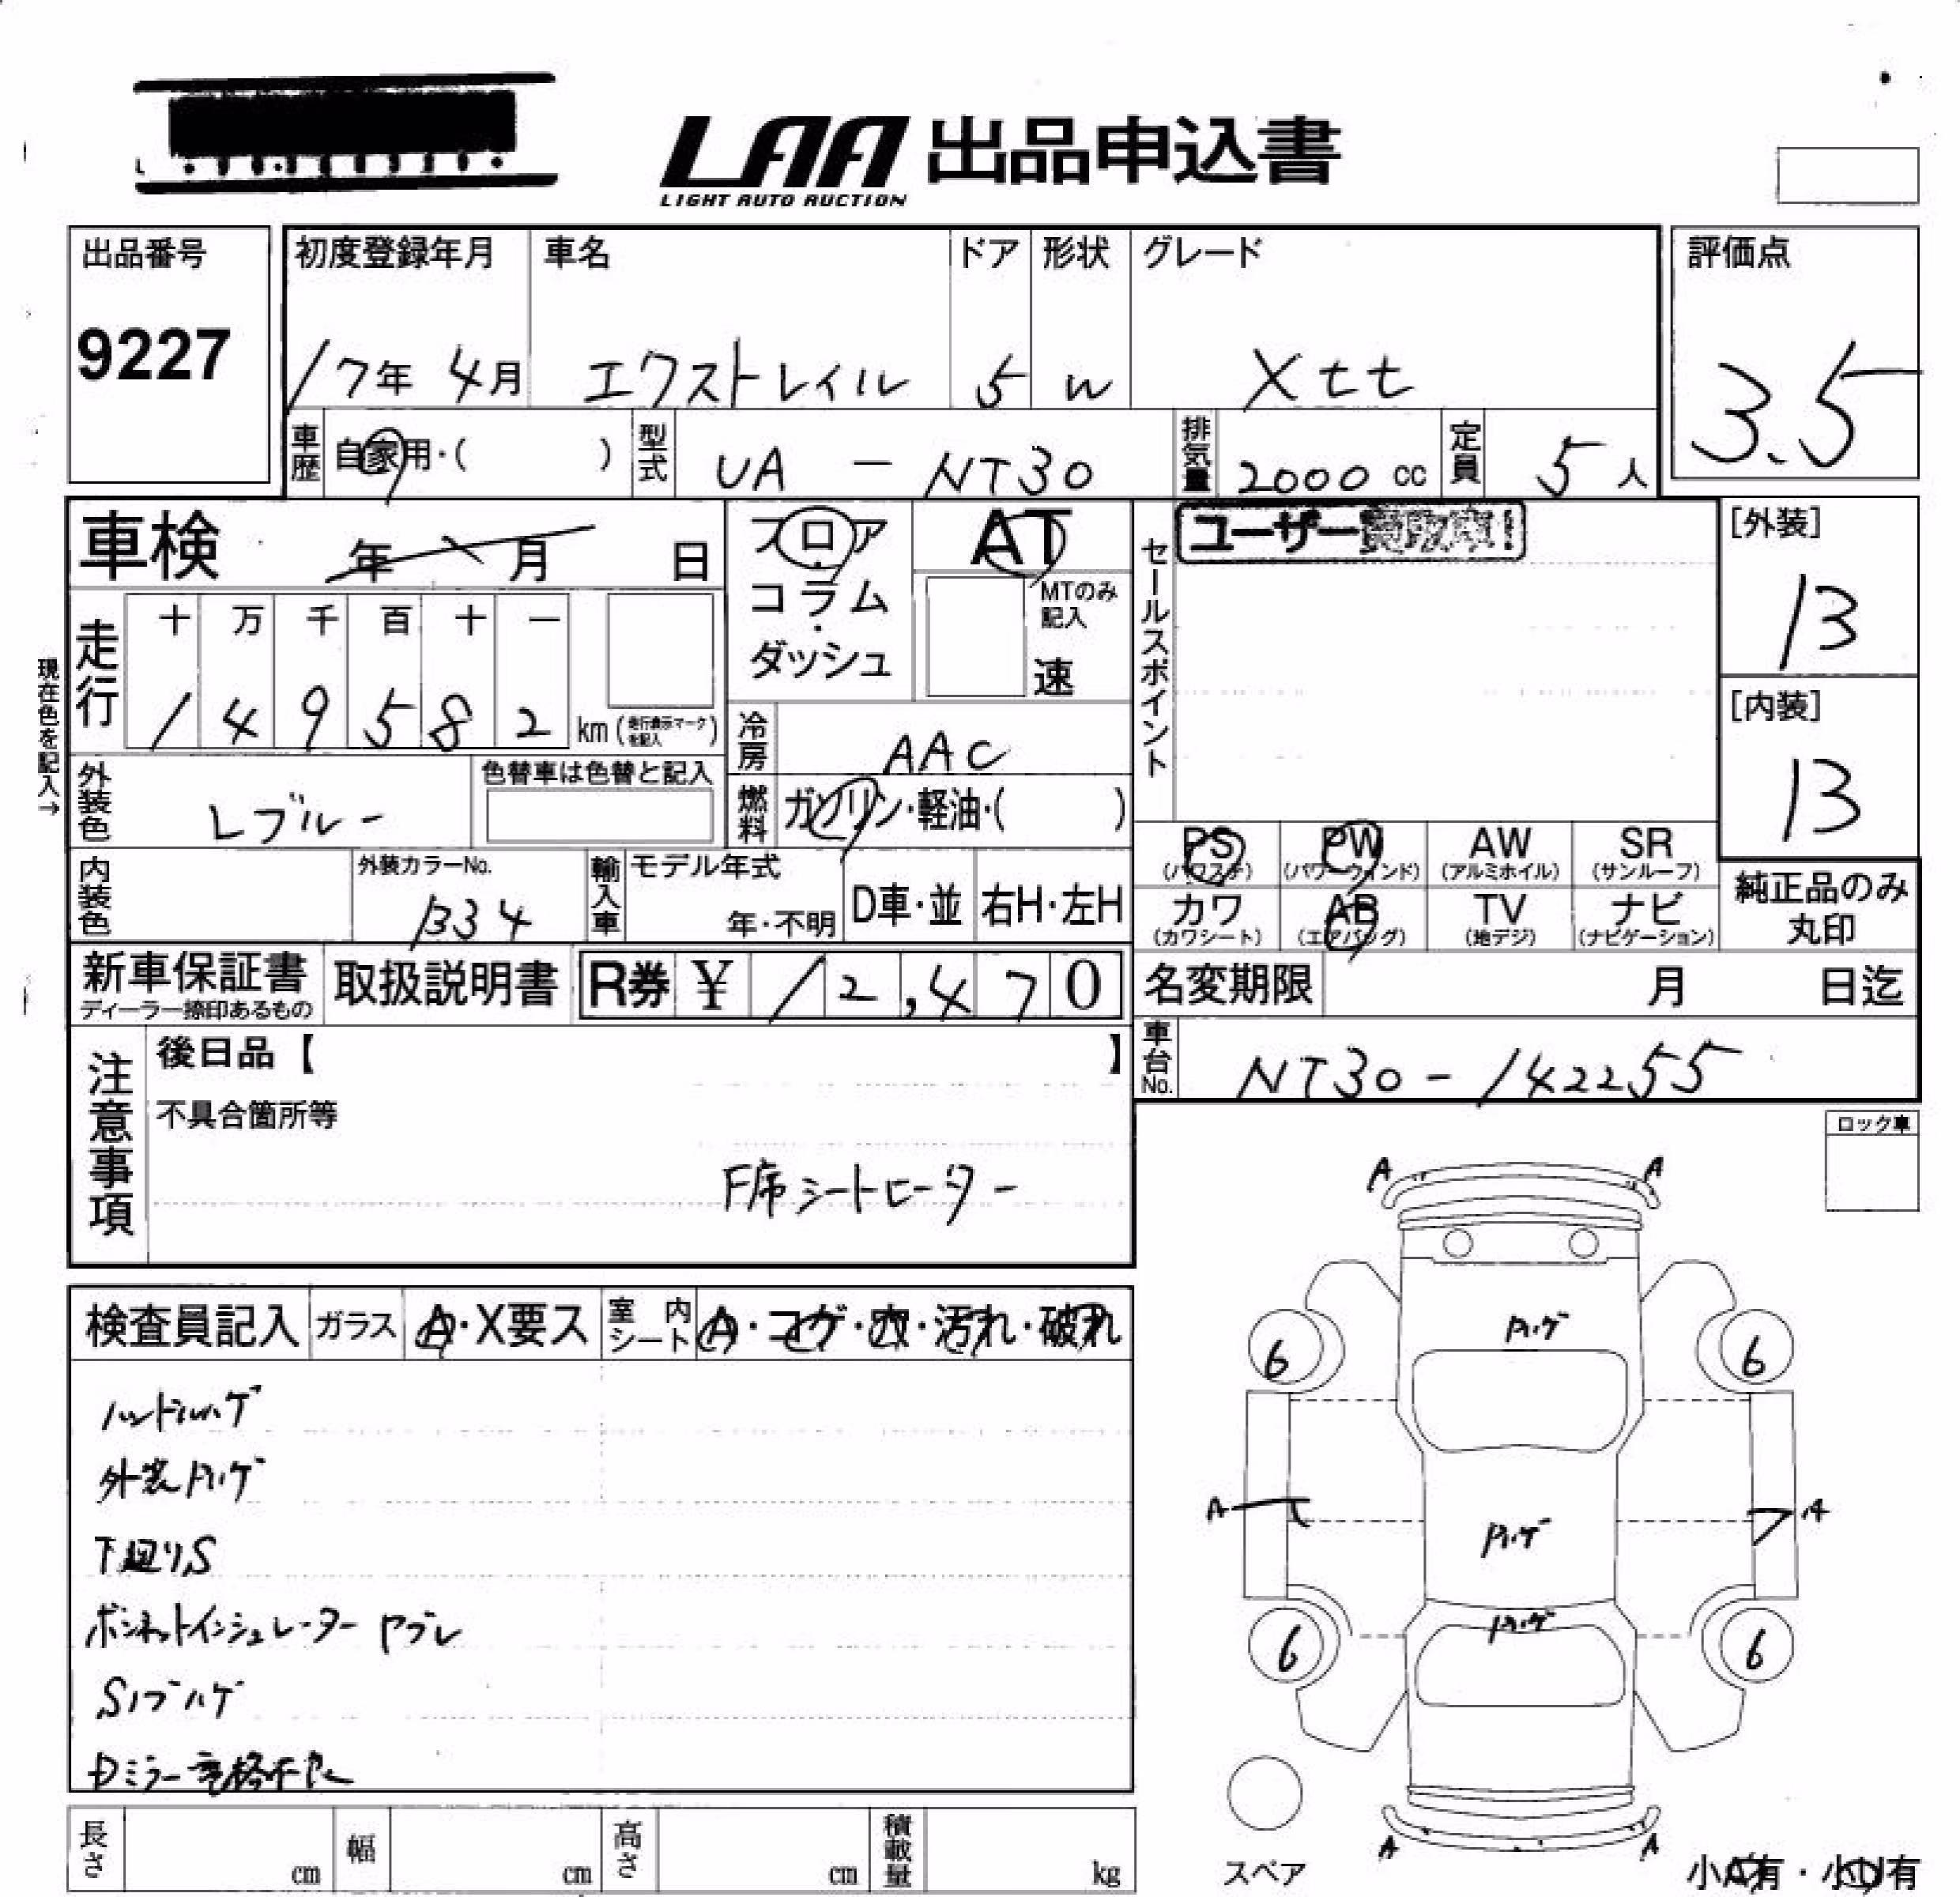 LAA 出品申込書
LIGHT AUTO AUCTION
出品番号 初度登録年月 車名 ドア 形状 グレード 評価点
9227 17年 4月 エクストレイル 5 W Xtt 3.5
車歴 自家用・( ) 型式 UA - NT30 排気量 2000 cc 定員 5人
車検 年 月 日 フロア・コラム・ダッシュ AT セールスポイント ユーザー [外装]
13
MTのみ記入
速
現在色を記入→
走行 十 万 千 百 十 一
1 4 9 5 8 2 km (走行表示マークを記入)
[内装]
13
冷房 AAC
外装色 Lブルー 色替車は色替と記入 燃料 ガソリン・軽油・( )
PS (パワステ) PW (パワーウィンド) AW (アルミホイル) SR (サンルーフ)
内装色 外装カラーNo. B34 輸入車 モデル年式 年・不明 D車・並 右H・左H
カワ (カワシート) AB (エアバッグ) TV (地デジ) ナビ (ナビゲーション) 純正品のみ丸印
新車保証書 ディーラー捺印あるもの 取扱説明書 R券 ¥ 12,470 名変期限 月 日迄
注意事項 後日品【 】 車台No. NT30-142255
不具合箇所等
ロック車
F席シートヒーター
A A
検査員記入 ガラス A・X要ス 室内シート A・コゲ・穴・汚れ・破れ
ハンドルハゲ
外装クリハゲ
下廻りS
ボンネットインシュレーター ヤブレ
Sノブハゲ
Dミラー電格不良
クリハゲ
6 6
A クリハゲ A
クリハゲ
6 6
A A
長さ cm 幅 cm 高さ cm 積載量 kg
スペア 小A有・小U有